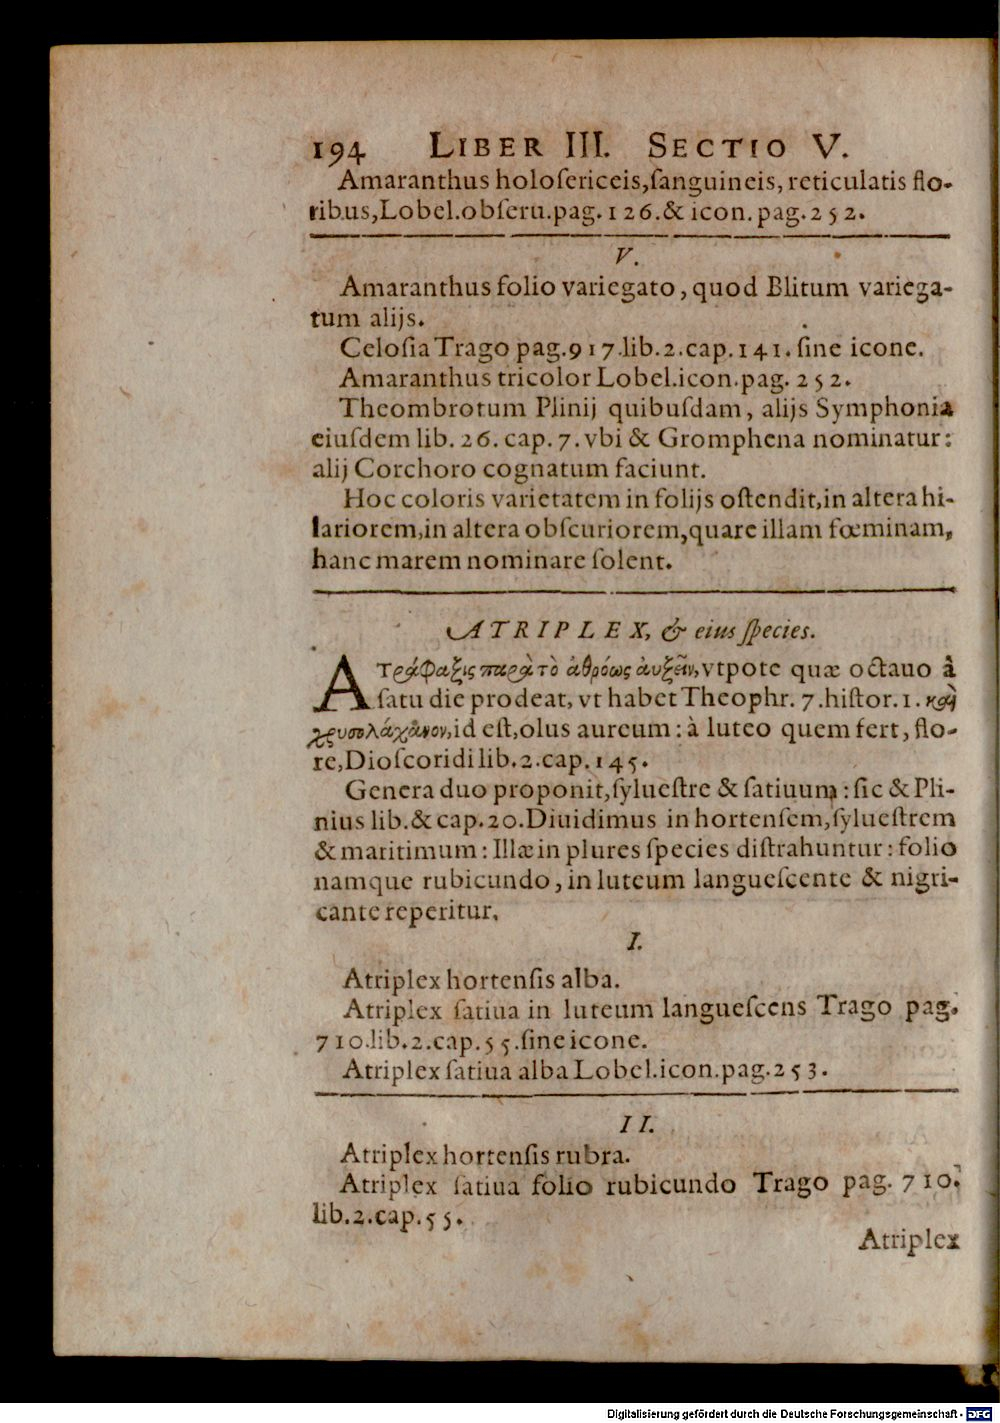 194 LIBER III. SECTIO V.
Amaranthus holoſericeis,ſanguineis, reticulatis flo-
ribus,Lobel.obſeru.pag.126.& icon.pag.252.
V.
Amaranthus folio variegato, quod Blitum variega-
tum alijs.
Celoſia Trago pag.917.lib.2.cap.141. ſine icone.
Amaranthus tricolor Lobel.icon.pag. 252.
Theombrotum Plinij quibuſdam, alijs Symphonia
eiuſdem lib. 26. cap. 7. vbi & Gromphena nominatur:
alij Corchoro cognatum faciunt.
Hoc coloris varietatem in folijs oſtendit,in altera hi-
lariorem,in altera obſcuriorem,quare illam fœminam,
hanc marem nominare ſolent.
ATRIPLEX, & eius ſpecies.
Ατράφαξις παρὰ τὸ ἀθρόως ἀυξεῖν,vtpote quæ octauo à
ſatu die prodeat, vt habet Theophr. 7.hiſtor.1. καὶ
χρυσολάχανον,id eſt,olus aureum: à luteo quem fert, flo-
re,Dioſcoridi lib.2.cap.145.
Genera duo proponit,ſylueſtre & ſatiuum: ſic & Pli-
nius lib.& cap.20.Diuidimus in hortenſem,ſylueſtrem
& maritimum: Illæ in plures ſpecies diſtrahuntur: folio
namque rubicundo, in luteum langueſcente & nigri-
cante reperitur.
I.
Atriplex hortenſis alba.
Atriplex ſatiua in luteum langueſcens Trago pag.
710.lib.2.cap.55.ſine icone.
Atriplex ſatiua alba Lobel.icon.pag.253.
II.
Atriplex hortenſis rubra.
Atriplex ſatiua folio rubicundo Trago pag. 710.
lib.2.cap.55.
Atriplex
Digitalisierung gefördert durch die Deutsche Forschungsgemeinschaft - DFG